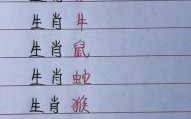 生肖牛
生肖鼠
生肖蛇
生肖猴